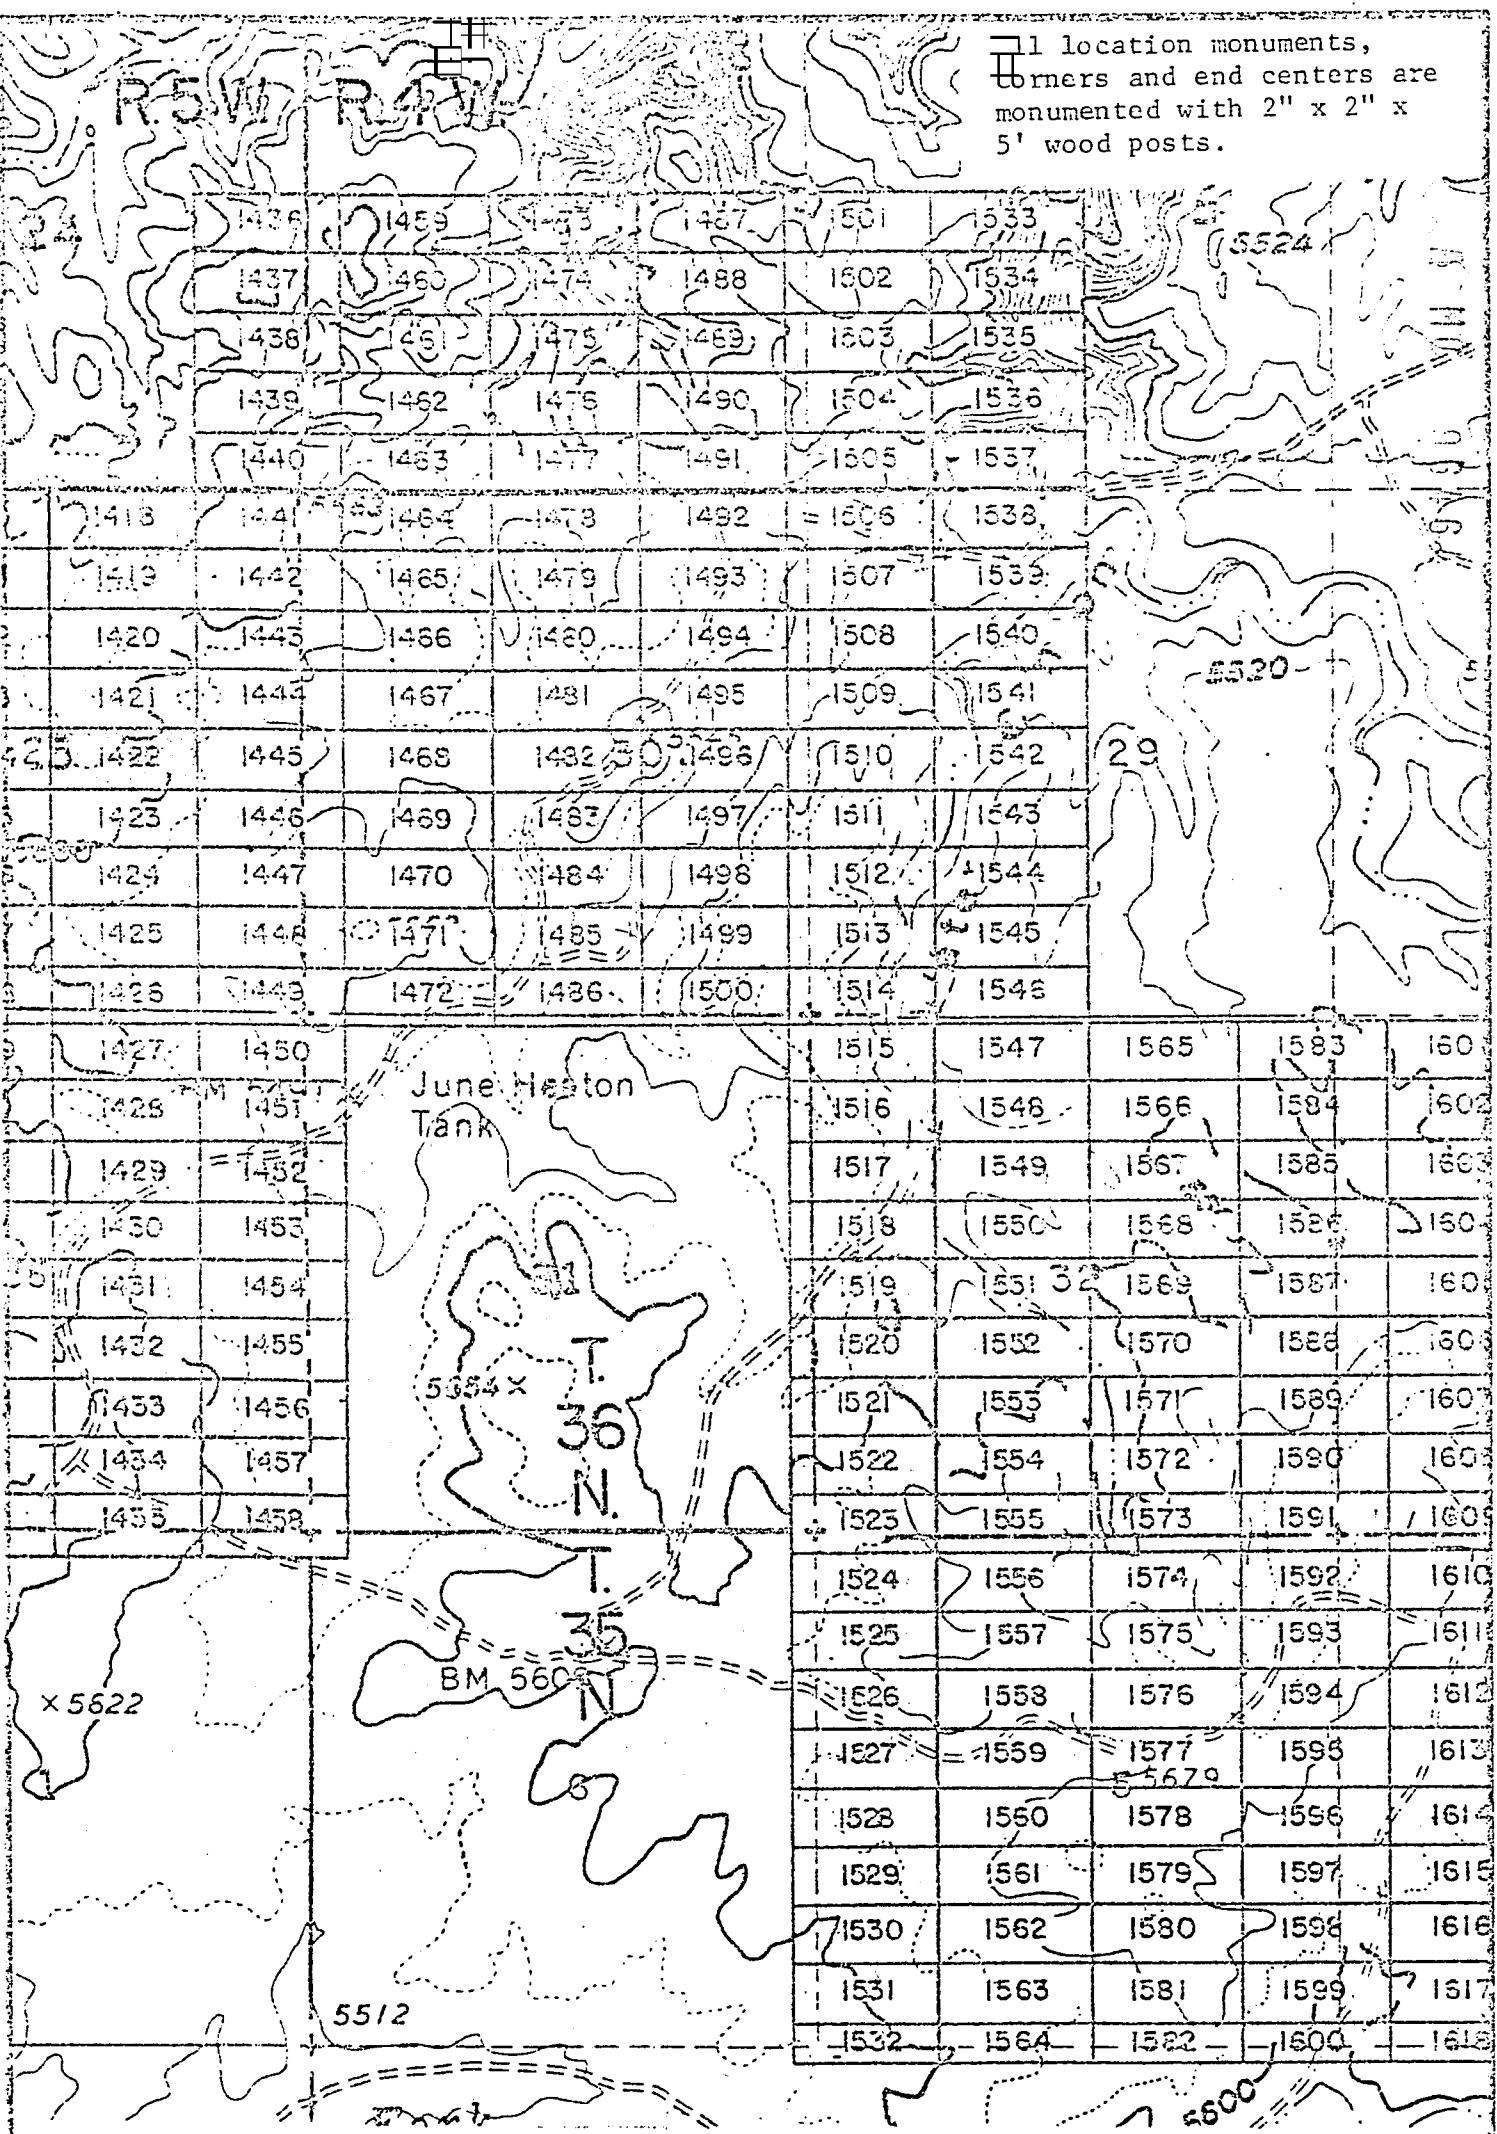 ll location monuments,
orners and end centers are
monumented with 2" x 2" x
5' wood posts.
R.5W. R.4W.
24
1436 1459 1473 1487 1501 1533
5524
1437 1460 1474 1488 1502 1534
1438 1461 1475 1489 1503 1535
1439 1462 1476 1490 1504 1536
1440 1463 1477 1491 1505 1537
1418 1441 1464 1478 1492 1506 1538
1419 1442 1465 1479 1493 1507 1539
1420 1443 1466 1480 1494 1508 1540
1421 1444 1467 1481 1495 1509 1541
5520
25 1422 1445 1468 1482 30 1496 1510 1542 29
1423 1446 1469 1483 1497 1511 1543
1424 1447 1470 1484 1498 1512 1544
1425 1448 1471 1485 1499 1513 1545
1426 1449 1472 1486 1500 1514 1546
1427 1450 1515 1547 1565 1583 160
June Heaton
Tank
1428 1451 1516 1548 1566 1584 1602
1429 1452 1517 1549 1567 1585 1603
1430 1453 1518 1550 1568 1586 160
1431 1454 31 1519 1551 32 1569 1587 160
1432 1455 1520 1552 1570 1588 160
T.
36
N.
1433 1456 1521 1553 1571 1589 160
1434 1457 1522 1554 1572 1590 160
1435 1458 1523 1555 1573 1591 1609
T.
35
N.
1524 1556 1574 1592 1610
1525 1557 1575 1593 1611
BM 560
×5622
1526 1558 1576 1594 1612
1527 1559 1577 1595 1613
5 5679
6
1528 1560 1578 1596 1614
1529 1561 1579 1597 1615
1530 1562 1580 1598 1616
1531 1563 1581 1599 1617
5512
1532 1564 1582 1600 1618
5600